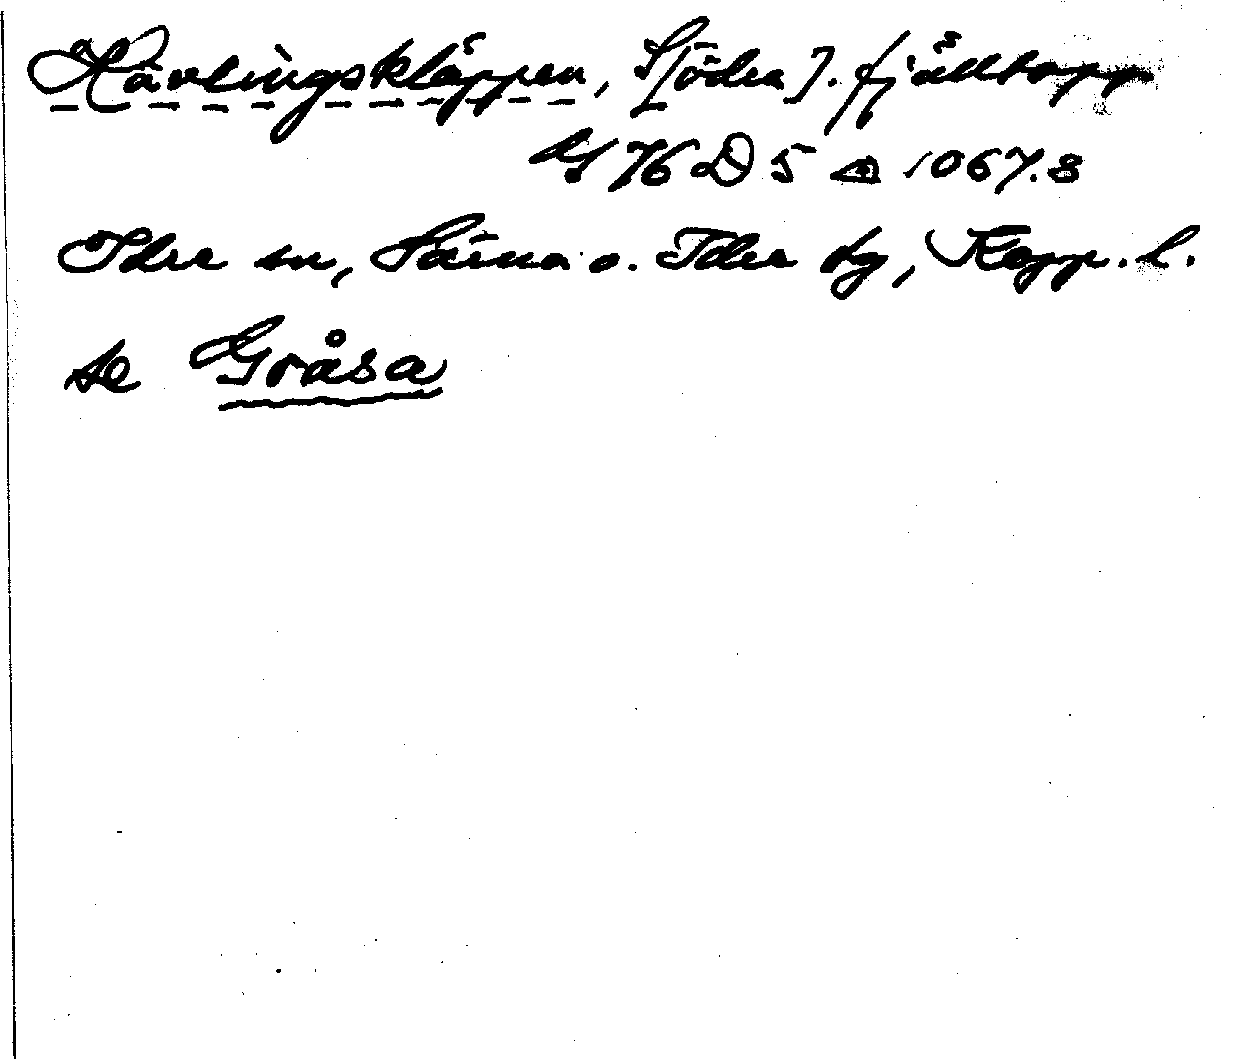 Hävlingskläppen, S[ödra]. fjälltopp
bl 76 D 5 △ 1067.8
Idre sn, Särna o. Idre tg, Kopp. l.
se Gråsa